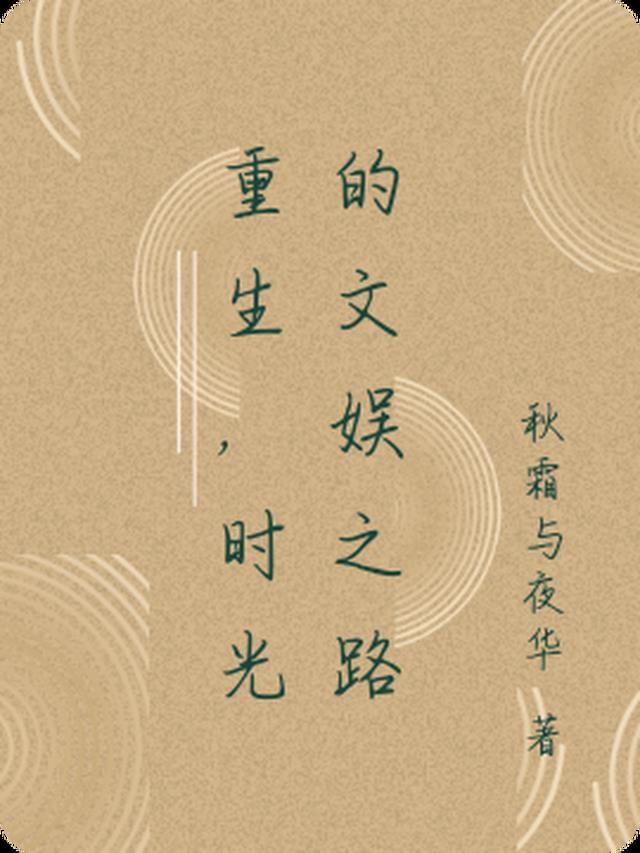 重生，时光
的文娱之路
秋霜与夜华 著